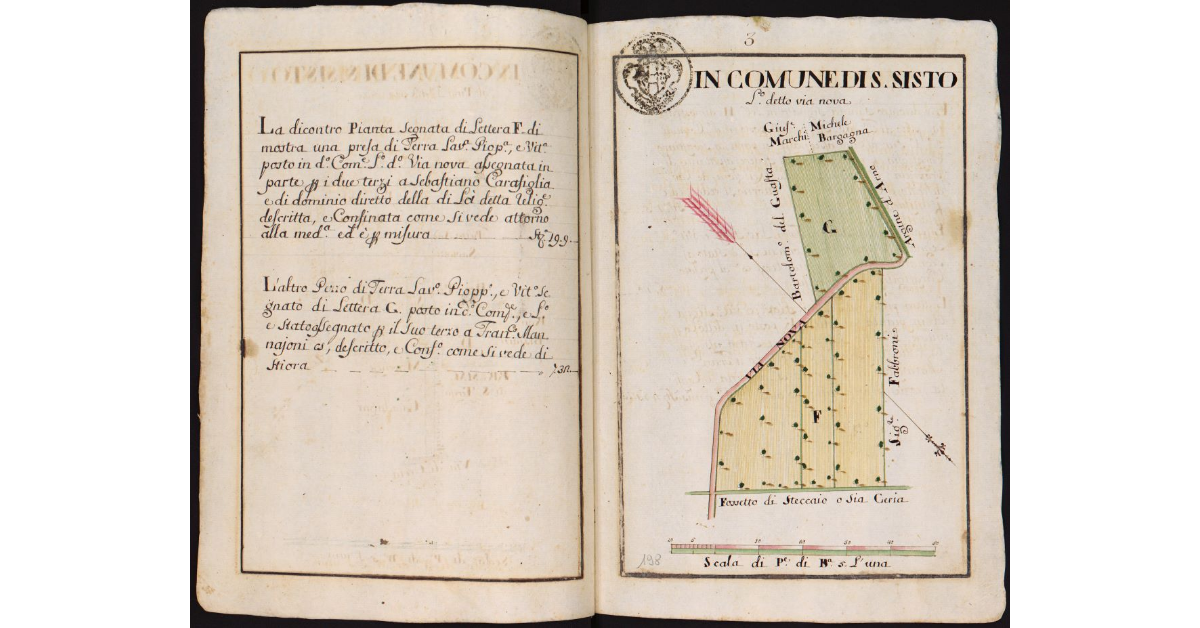 La dicontro Pianta segnata di Lettera F. di
mostra una presa di Terra Lav.ª Piop.ª, e Vit.ª
posto in d.º Com.e L.º d.º Via nova assegnata in
parte p i due terzi a Sebastiano Carasiglia
e di dominio diretto della di Loi detta Relig.e
descritta, e Confinata come si vede attorno
alla med.ª ed è p misura St.ª 19.9.
L'altro Pezzo di Terra Lav.ª Piopp.ª, e Vit.ª se
gnato di Lettera G. posto in d.º Com.e, e L.º
e stato assegnato p il suo terzo a Fran.º Man
najoni cs', descritto, e Conf.º come si vede di
Stiora
3
IN COMUNE DI S. SISTO
L.º detto via nova
Gius.e Michele
March.i Bargagna
Bartolom.º del Guasta
Argine d'Arno
G
VIA NOVA
F
Sig.e Fabbroni
Fossetto di Steccaio o Sia Ceria
10 0 10 20 30 40 50
Scala di P.e di B.ª 5 L'una
198